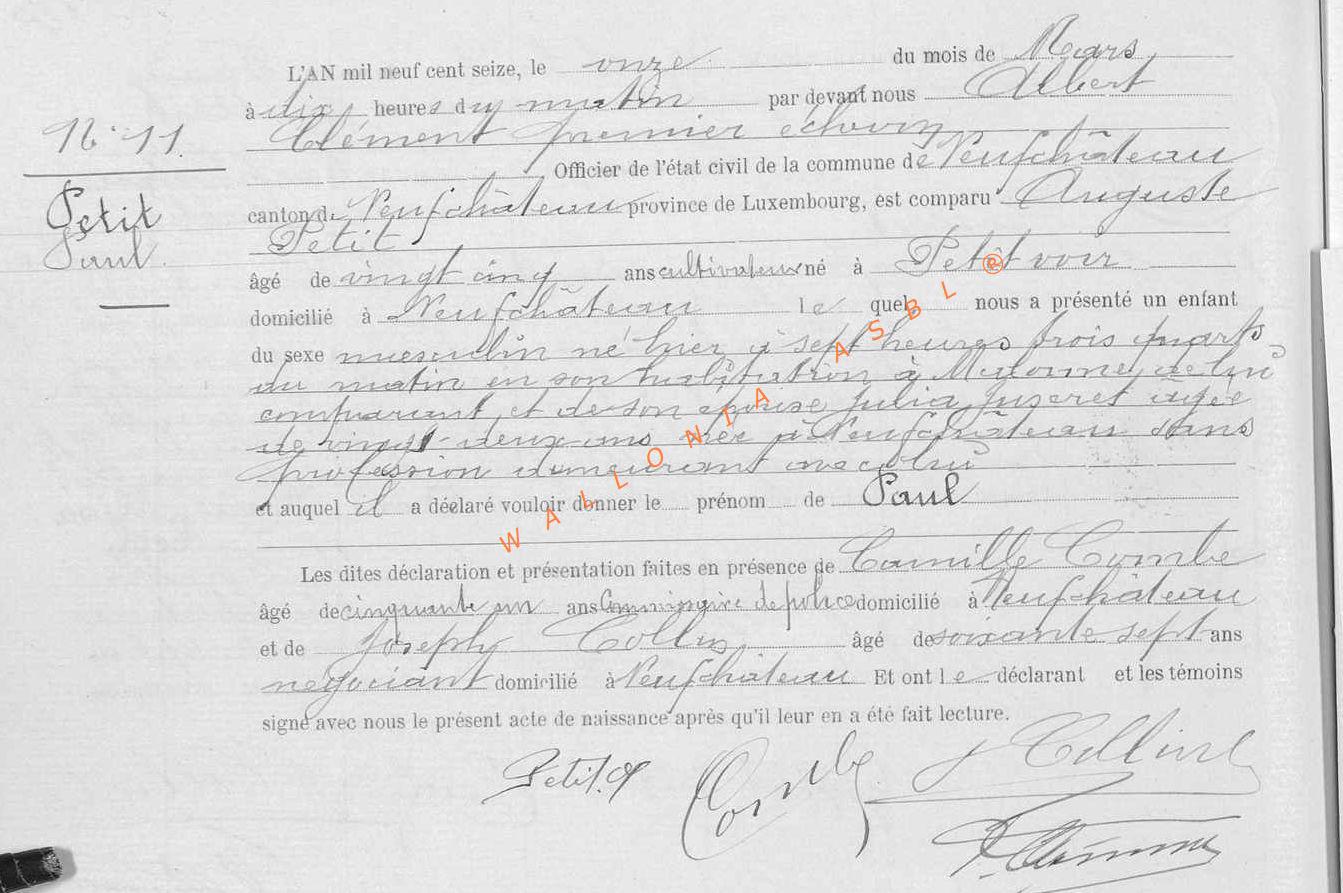 L'AN mil neuf cent seize, le onze du mois de Mars
à dix heures du matin par devant nous Albert
Clément premier échevin
N° 11.
Officier de l'état civil de la commune de Neufchâteau
Petit
Paul.
canton de Neufchâteau province de Luxembourg, est comparu Auguste
Petit
âgé de vingt cinq ans cultivateur né à Petitvoir
domicilié à Neufchâteau lequel nous a présenté un enfant
du sexe masculin né hier à sept heures trois quarts
du matin en son habitation à de lui
comparant et de son épouse Julia Juseret âgée
de vingt-deux ans née à Neufchâteau sans
profession demeurant avec lui
et auquel il a déclaré vouloir donner le prénom de Paul
WALLONIA ASBL
Les dites déclaration et présentation faites en présence de Camille Combe
âgé de cinquante un ans Commissaire de police domicilié à Neufchâteau
et de Joseph Collin âgé de soixante sept ans
négociant domicilié à Neufchâteau Et ont le déclarant et les témoins
signé avec nous le présent acte de naissance après qu'il leur en a été fait lecture.
Petit. A
Combe
J Collin